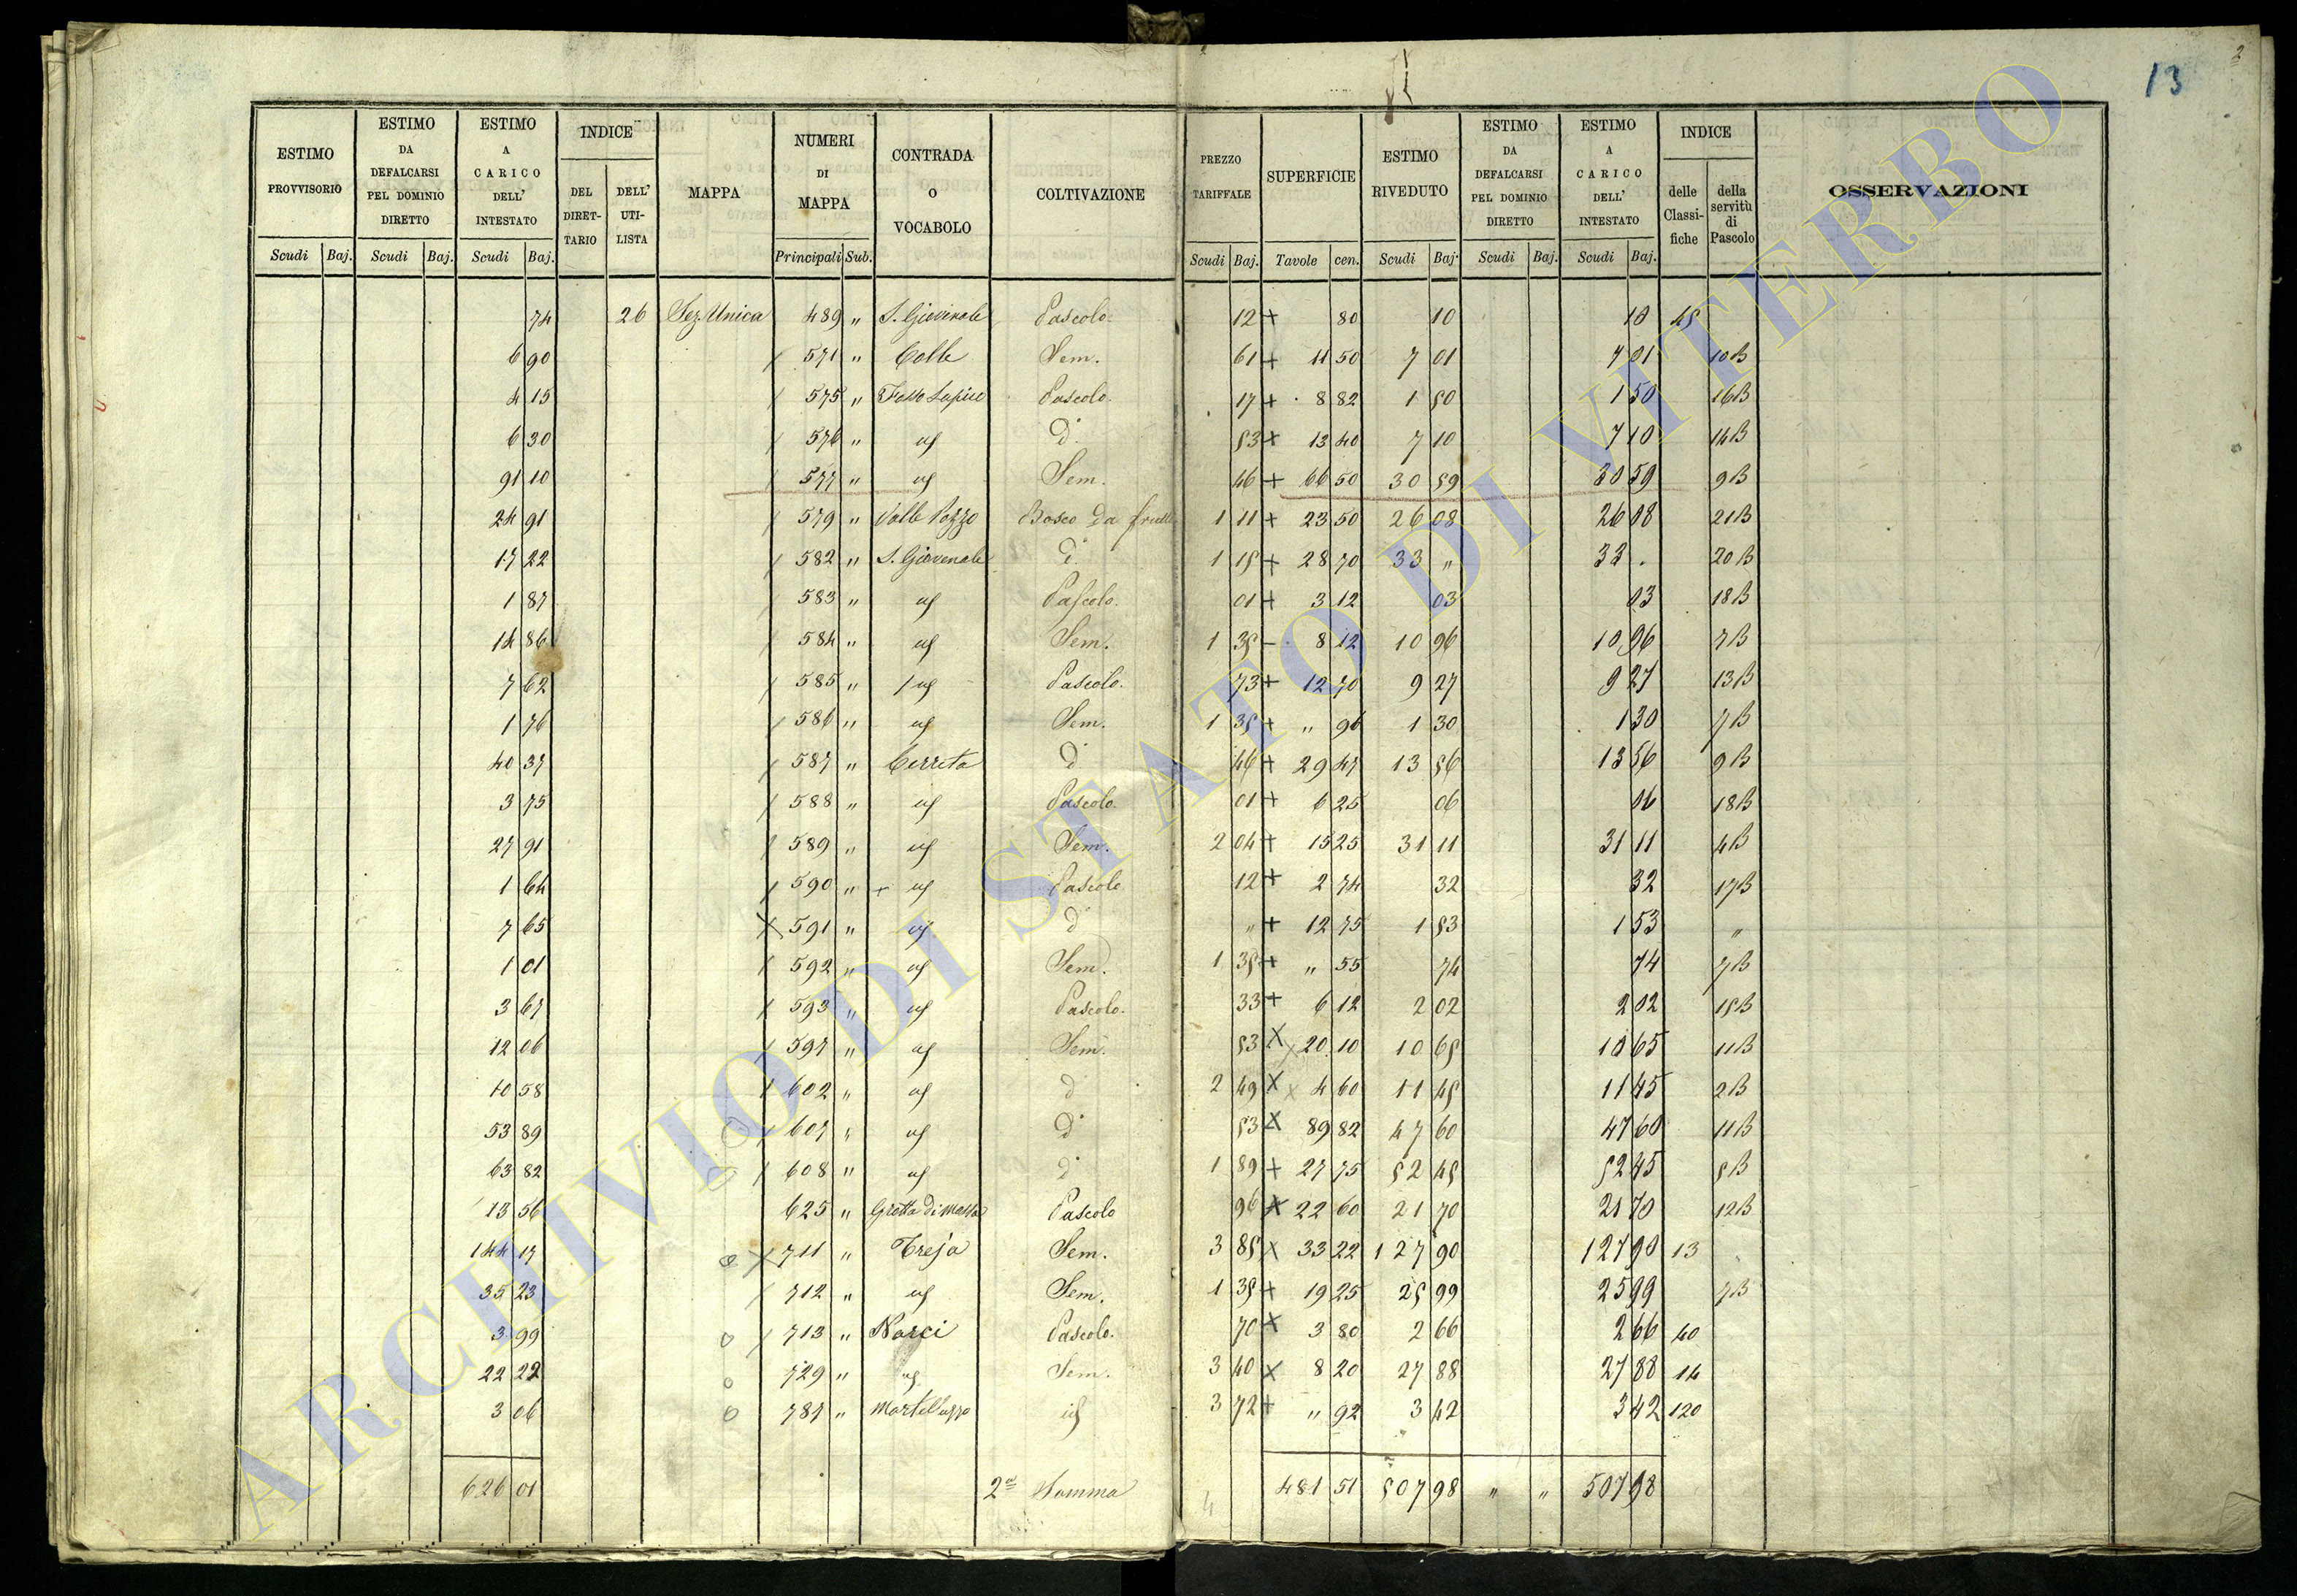 13
2
ESTIMO PROVVISORIO
ESTIMO DA DEFALCARSI PEL DOMINIO DIRETTO
ESTIMO A CARICO DELL' INTESTATO
INDICE
DEL DIRET-TARIO
DELL' UTI-LISTA
MAPPA
NUMERI DI MAPPA
CONTRADA O VOCABOLO
COLTIVAZIONE
PREZZO TARIFFALE
SUPERFICIE
ESTIMO RIVEDUTO
ESTIMO DA DEFALCARSI PEL DOMINIO DIRETTO
ESTIMO A CARICO DELL' INTESTATO
INDICE
delle Classi-fiche
della servitù di Pascolo
OSSERVAZIONI
Scudi Baj. Scudi Baj. Scudi Baj. Principali Sub. Scudi Baj. Tavole cen. Scudi Baj. Scudi Baj. Scudi Baj.
74 26 Sez. Unica 489 " S. Giovenale Pascolo 12 + 80 10 10 45
6 90 / 571 " Colle Sem. 61 + 11 50 7 01 7 01 10B
4 15 / 575 " Fosso Lupino Pascolo. 17 + 8 82 1 50 1 50 16B
6 30 / 576 " us d° 53 + 13 40 7 10 7 10 14B
91 10 / 577 " us Sem. 46 + 66 50 30 59 30 59 9B
24 91 / 579 " Valle Pozzo Bosco da frutto 1 11 + 23 50 26 08 26 08 21B
17 22 / 582 " S. Giovenale d° 1 15 + 28 70 33 " 33 . 20B
1 87 / 583 " us Pascolo. 01 + 3 12 03 03 18B
14 86 / 584 " us Sem. 1 35 - 8 12 10 96 10 96 7B
7 62 / 585 " us Pascolo. 73 + 12 70 9 27 9 27 13B
1 76 / 586 " us Sem. 1 35 + " 96 1 30 1 30 7B
40 37 / 587 " Cerreto d° 46 + 29 47 13 56 13 56 9B
3 75 / 588 " us Pascolo 01 + 6 25 06 06 18B
27 91 / 589 " us Sem. 2 04 + 15 25 31 11 31 11 4B
1 64 / 590 " + us Pascolo 12 + 2 74 32 32 17B
7 65 X 591 " us d° " + 12 75 1 53 1 53 "
1 01 / 592 " us Sem. 1 35 + " 55 74 74 7B
3 67 / 593 " us Pascolo. 33 + 6 12 2 02 2 02 15B
12 06 / 597 " us Sem. 53 X 20 10 10 65 10 65 11B
10 58 / 602 " us d° 2 49 X 4 60 11 45 11 45 2B
53 89 / 607 " us d° 53 X 89 82 47 60 47 60 11B
63 82 / 608 " us d° 1 89 + 27 75 52 45 52 45 5B
13 56 625 " Grotta di Massa Pascolo 96 X 22 60 21 70 21 70 12B
144 17 X 711 " Treja Sem. 3 85 X 33 22 127 90 127 90 13
35 23 / 712 " us Sem. 1 35 + 19 25 25 99 25 99 7B
3 99 / 713 " Narci Pascolo. 70 X 3 80 2 66 2 66 40
22 22 729 " us Sem. 3 40 X 8 20 27 88 27 88 14
3 06 787 " Martelluzzo us 3 72 + " 92 3 42 3 42 120
626 01 2ª Somma 481 51 507 98 " " 507 98
ARCHIVIO DI STATO DI VITERBO